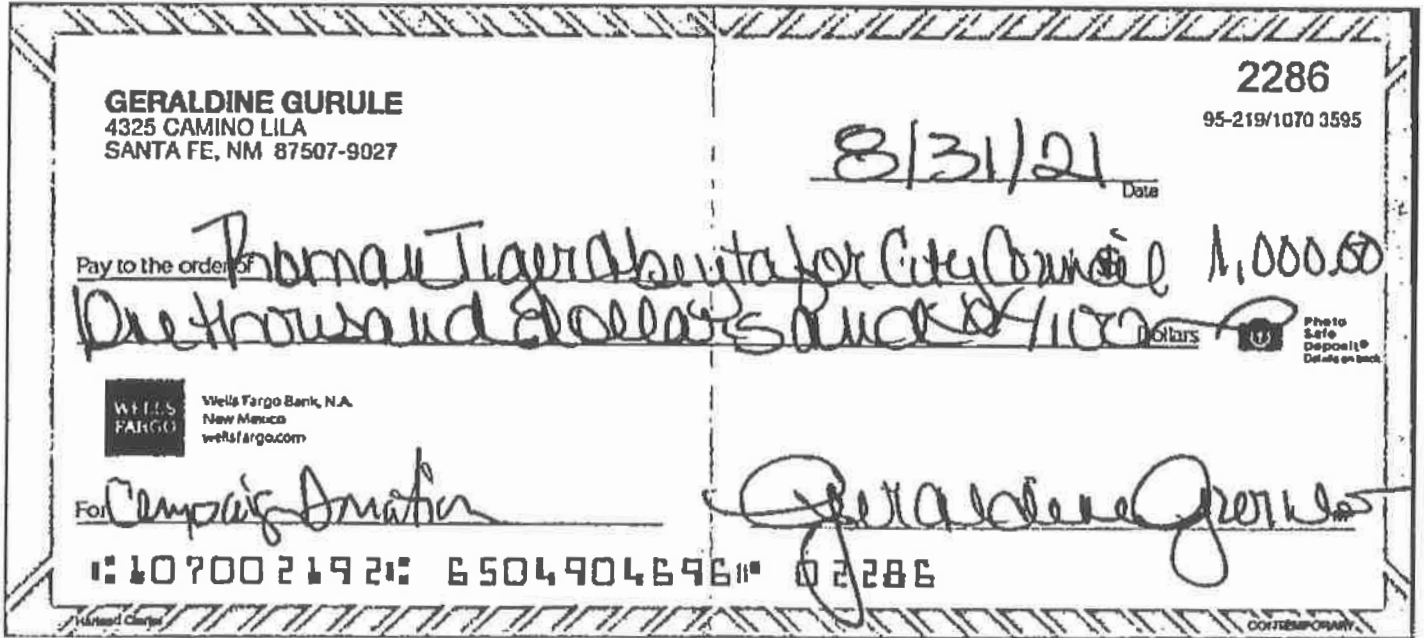 GERALDINE GURULE
4325 CAMINO LILA
SANTA FE, NM 87507-9027
2286
95-219/1070 3595
8/31/21
Date
Pay to the order of Roman Tiger Abeyta for City Council $ 1,000.00
One thousand dollars and xx/100 Dollars
Photo
Safe
Deposit®
Details on back
WELLS
FARGO
Wells Fargo Bank, N.A.
New Mexico
wellsfargo.com
For Campaig Donation
Geraldine Gurule
⑆107002192⑆ 6504904696⑈ 02286
Harland Clarke
CONTEMPORARY